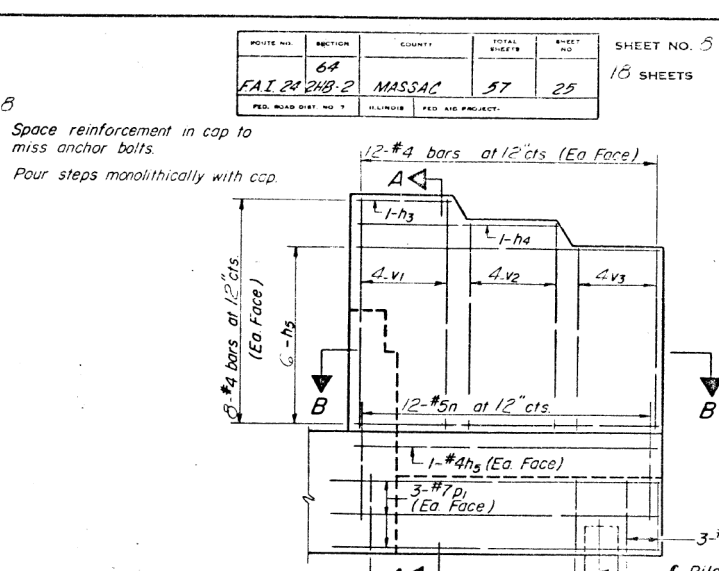 ROUTE NO. SECTION COUNTY TOTAL SHEETS SHEET NO
F.A.I. 24 64 2HB-2 MASSAC 57 25
FED. ROAD DIST. NO 7 ILLINOIS FED AID PROJECT-
SHEET NO. 5
18 SHEETS
8
Space reinforcement in cap to
miss anchor bolts.
Pour steps monolithically with cap.
12-#4 bars at 12"cts (Ea Face)
A
1-h3
1-h4
4-v1 4-v2 4v3
8-#4 bars at 12"cts.
(Ea. Face)
6-h5
B B
12-#5n at 12"cts.
1-#4h5 (Ea. Face)
3-#7p1
(Ea. Face)
3-#
A